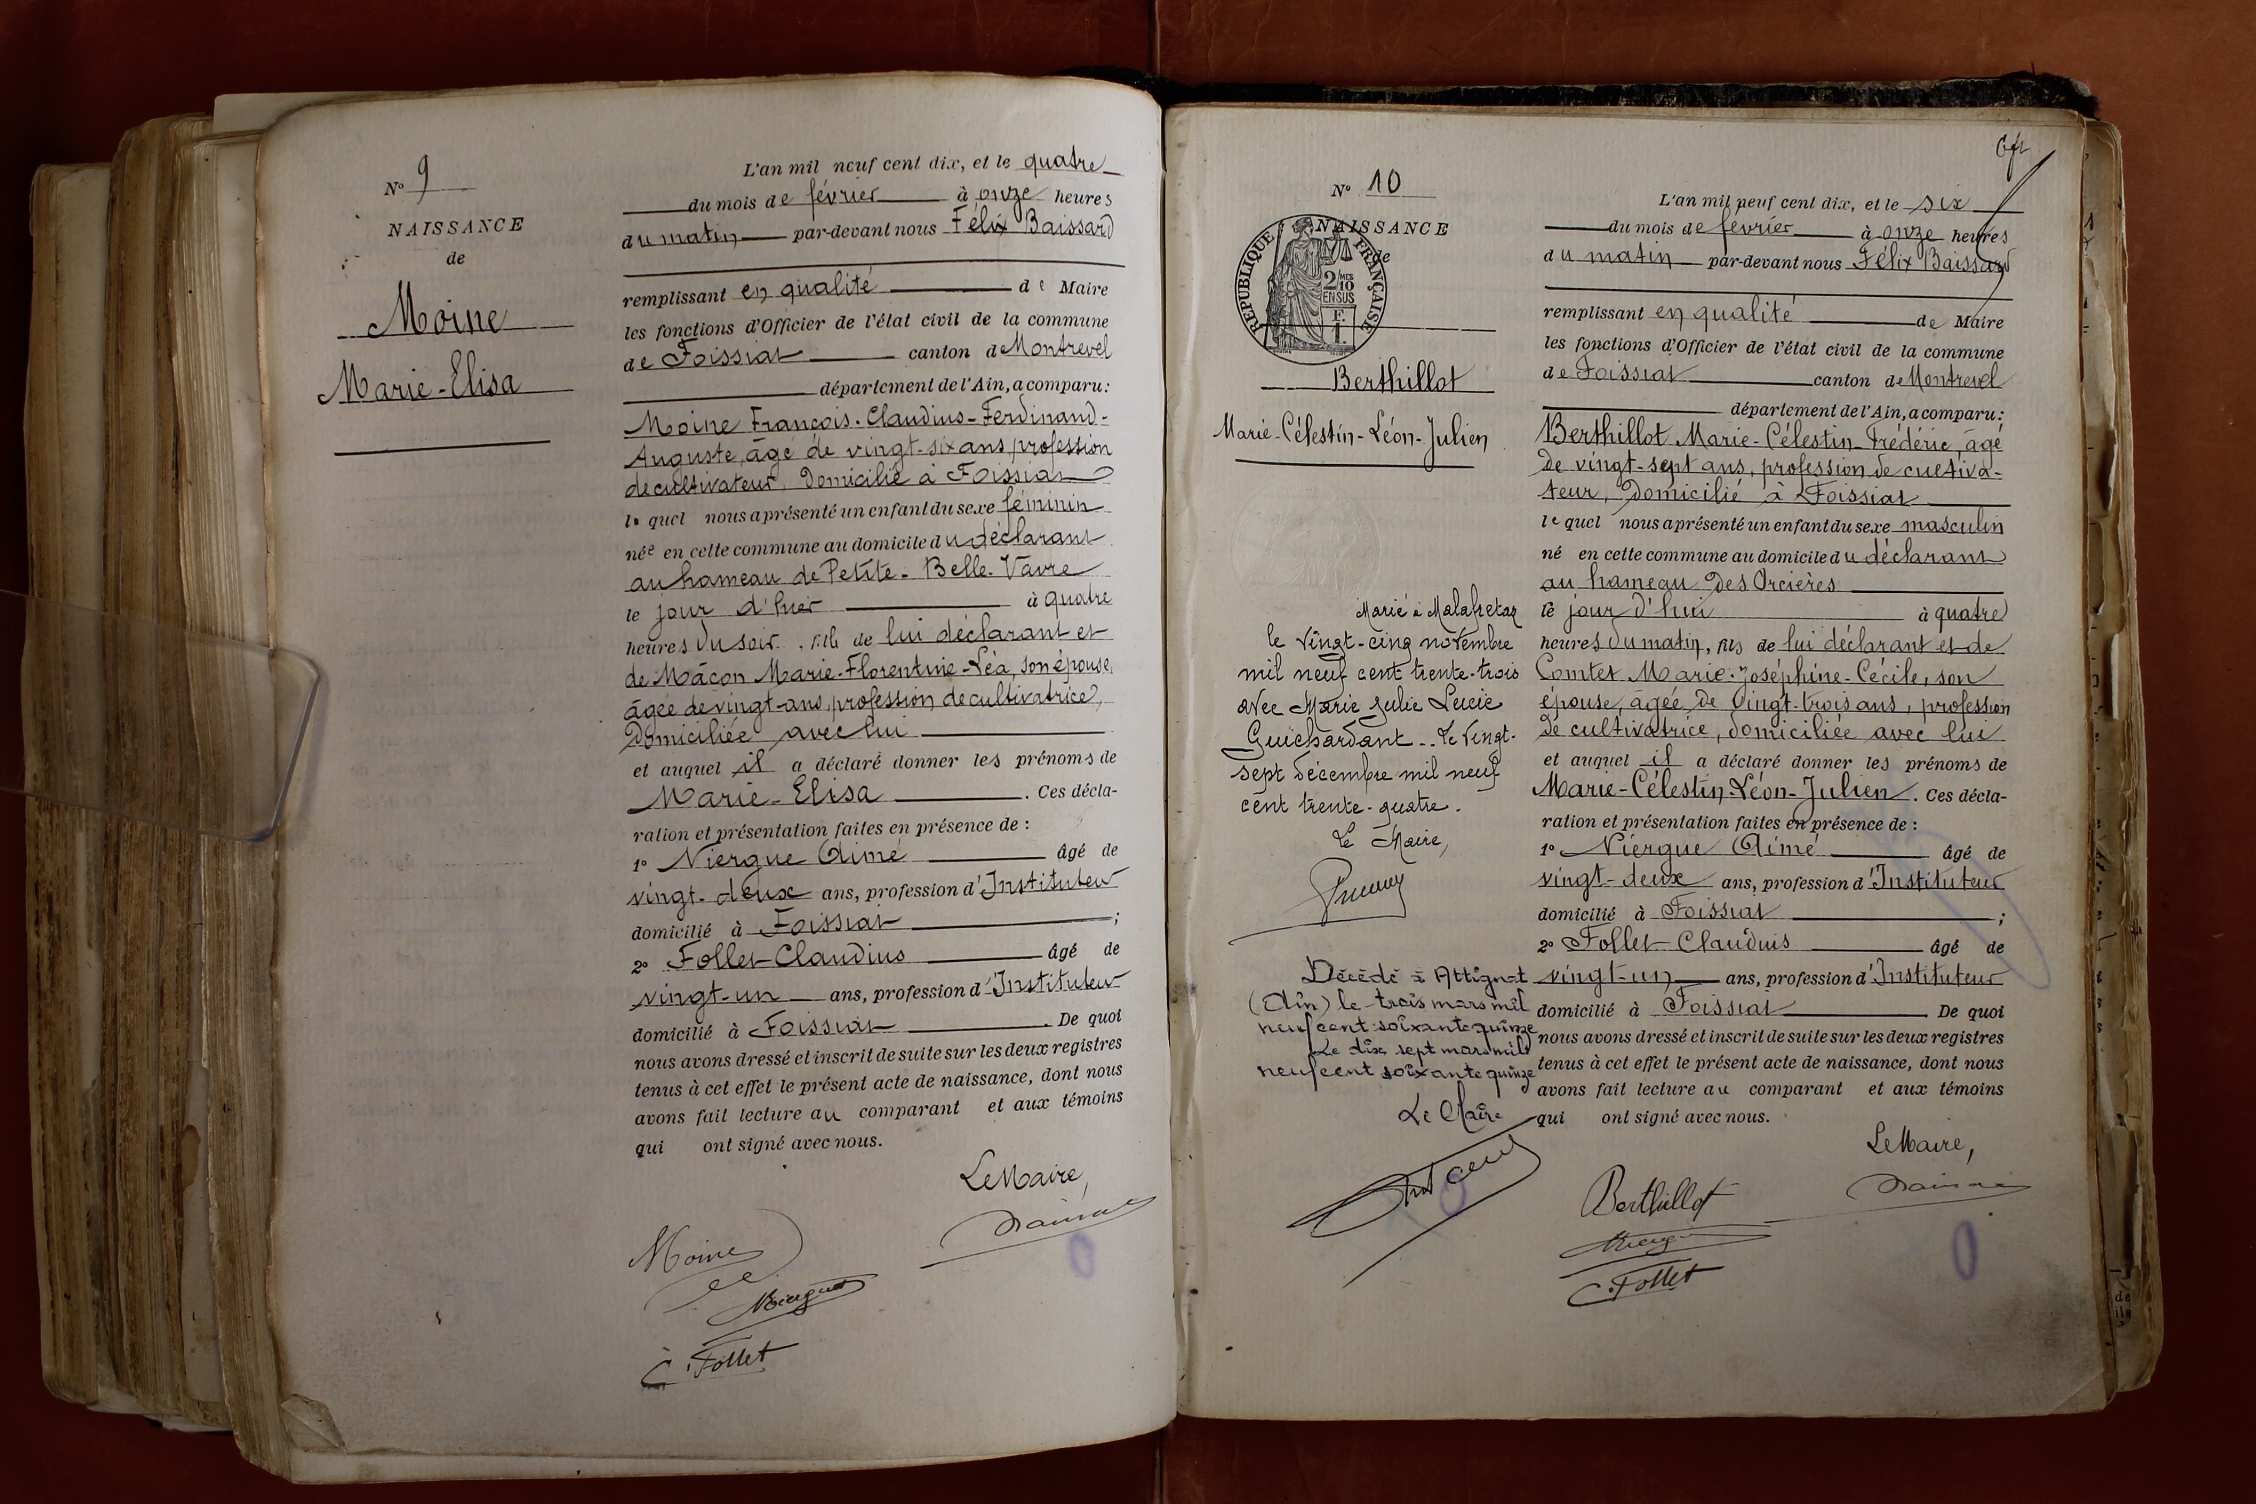 N° 9
NAISSANCE
de
Moine
Marie-Elisa
L'an mil neuf cent dix, et le quatre
du mois de février à onze heures
du matin par-devant nous Félix Baissard
remplissant en qualité de Maire
les fonctions d'Officier de l'état civil de la commune
de Foissiat canton de Montrevel
département de l'Ain, a comparu:
Moine François-Claudius-Ferdinand-
Auguste, âgé de vingt-six ans, profession
de cultivateur, domicilié à Foissiat
lequel nous a présenté un enfant du sexe féminin
née en cette commune au domicile du déclarant
au hameau de Petite-Belle-Vavre
le jour d'hier à quatre
heures du soir, fille de lui déclarant et
de Mâcon Marie-Florentine-Léa, son épouse,
âgée de vingt-ans, profession de cultivatrice,
domiciliée avec lui
et auquel il a déclaré donner les prénoms de
Marie-Elisa. Ces décla-
ration et présentation faites en présence de :
1° Niergue Aimé âgé de
vingt-deux ans, profession d'Instituteur
domicilié à Foissiat ;
2° Follet Claudius âgé de
vingt-un ans, profession d'Instituteur
domicilié à Foissiat. De quoi
nous avons dressé et inscrit de suite sur les deux registres
tenus à cet effet le présent acte de naissance, dont nous
avons fait lecture au comparant et aux témoins
qui ont signé avec nous.
Le Maire,
Moine
Niergue
C. Follet
N° 10
NAISSANCE
de
RÉPUBLIQUE FRANÇAISE
2/10 MES
EN SUS
F.
1.
Berthillot
Marie-Célestin-Léon-Julien
Marié à Malafretaz
le vingt-cinq novembre
mil neuf cent trente-trois
avec Marie Julie Lucie
Guichardant.. Le vingt-
sept décembre mil neuf
cent trente-quatre.
Le Maire,
Décédé à Attignat
(Ain) le trois mars mil
neuf cent soixante quinze
Le dix sept mars mil
neuf cent soixante quinze
Le Maire
L'an mil neuf cent dix, et le six
du mois de février à onze heures
du matin par-devant nous Félix Baissard
remplissant en qualité de Maire
les fonctions d'Officier de l'état civil de la commune
de Foissiat canton de Montrevel
département de l'Ain, a comparu:
Berthillot Marie-Célestin-Frédéric, âgé
de vingt-sept ans, profession de cultiva-
teur, domicilié à Foissiat
lequel nous a présenté un enfant du sexe masculin
né en cette commune au domicile du déclarant
au hameau des Orcières
le jour d'hui à quatre
heures du matin, fils de lui déclarant et de
Comtet Marie-Joséphine-Cécile, son
épouse, âgée de vingt-trois ans, profession
de cultivatrice, domiciliée avec lui
et auquel il a déclaré donner les prénoms de
Marie-Célestin-Léon-Julien. Ces décla-
ration et présentation faites en présence de :
1° Niergue Aimé âgé de
vingt-deux ans, profession d'Instituteur
domicilié à Foissiat ;
2° Follet Claudius âgé de
vingt-un ans, profession d'Instituteur
domicilié à Foissiat. De quoi
nous avons dressé et inscrit de suite sur les deux registres
tenus à cet effet le présent acte de naissance, dont nous
avons fait lecture au comparant et aux témoins
qui ont signé avec nous.
Le Maire,
Berthillot
C. Follet